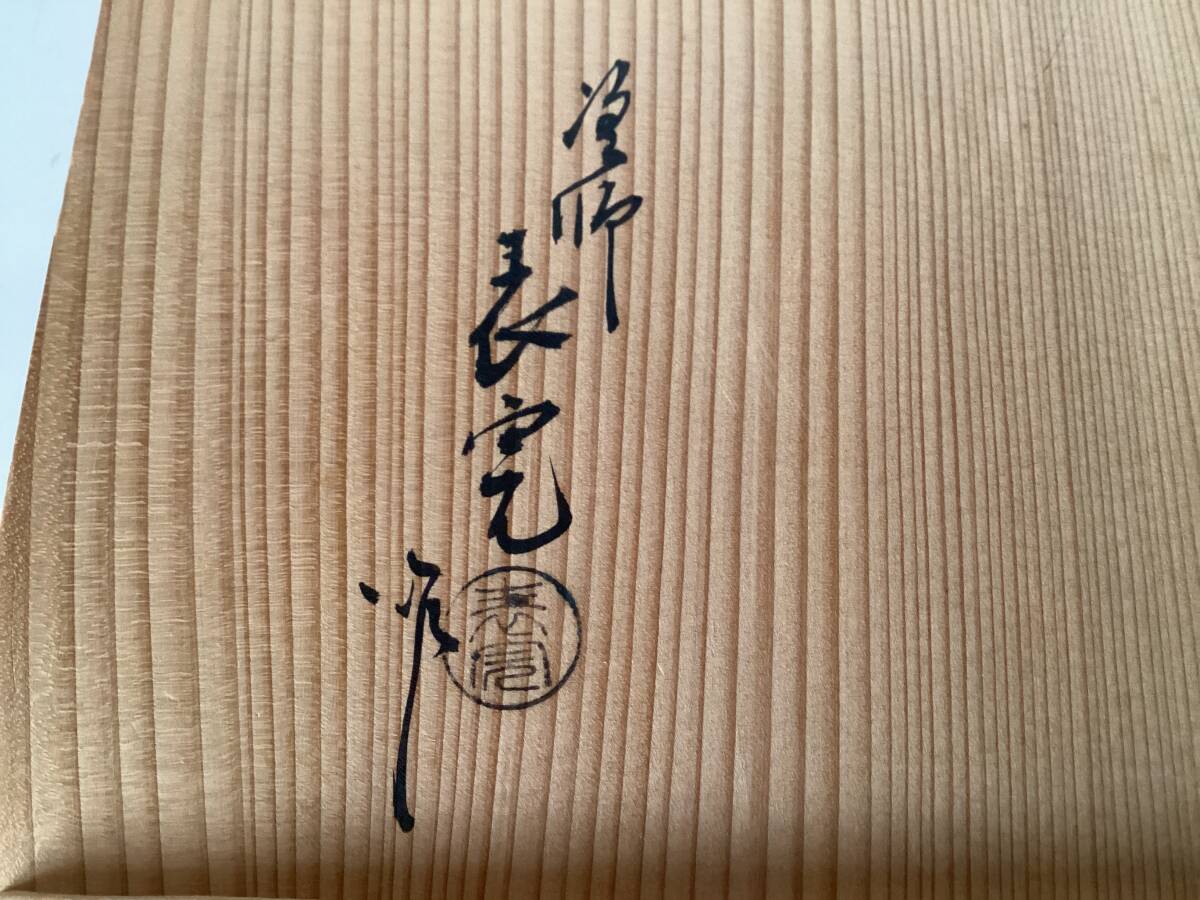 塗師
表完
作
表完